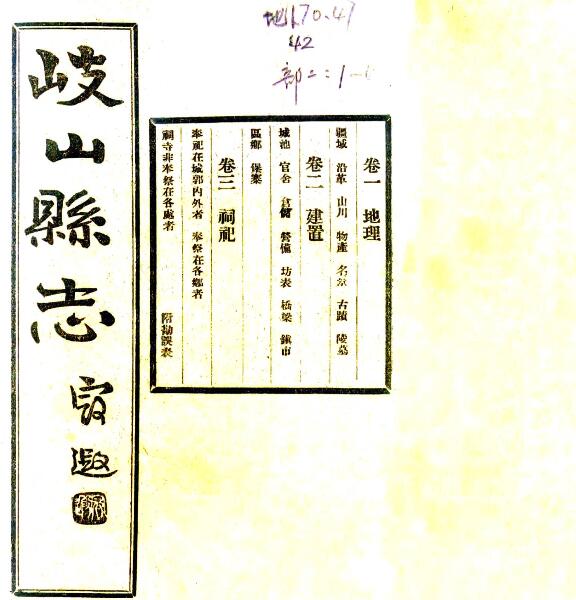 地170.47
42
部二:1-6
岐山縣志
卷一 地理
疆域 沿革 山川 物產 名宦 古蹟 陵墓
卷二 建置
城池 官舍 倉儲 警備 坊表 橋梁 鎮市
區鄉 保案
卷三 祠祀
奉祀在城郭內外者 奉祭在各鄉者
祠寺非奉祭在各處者 附勘誤表